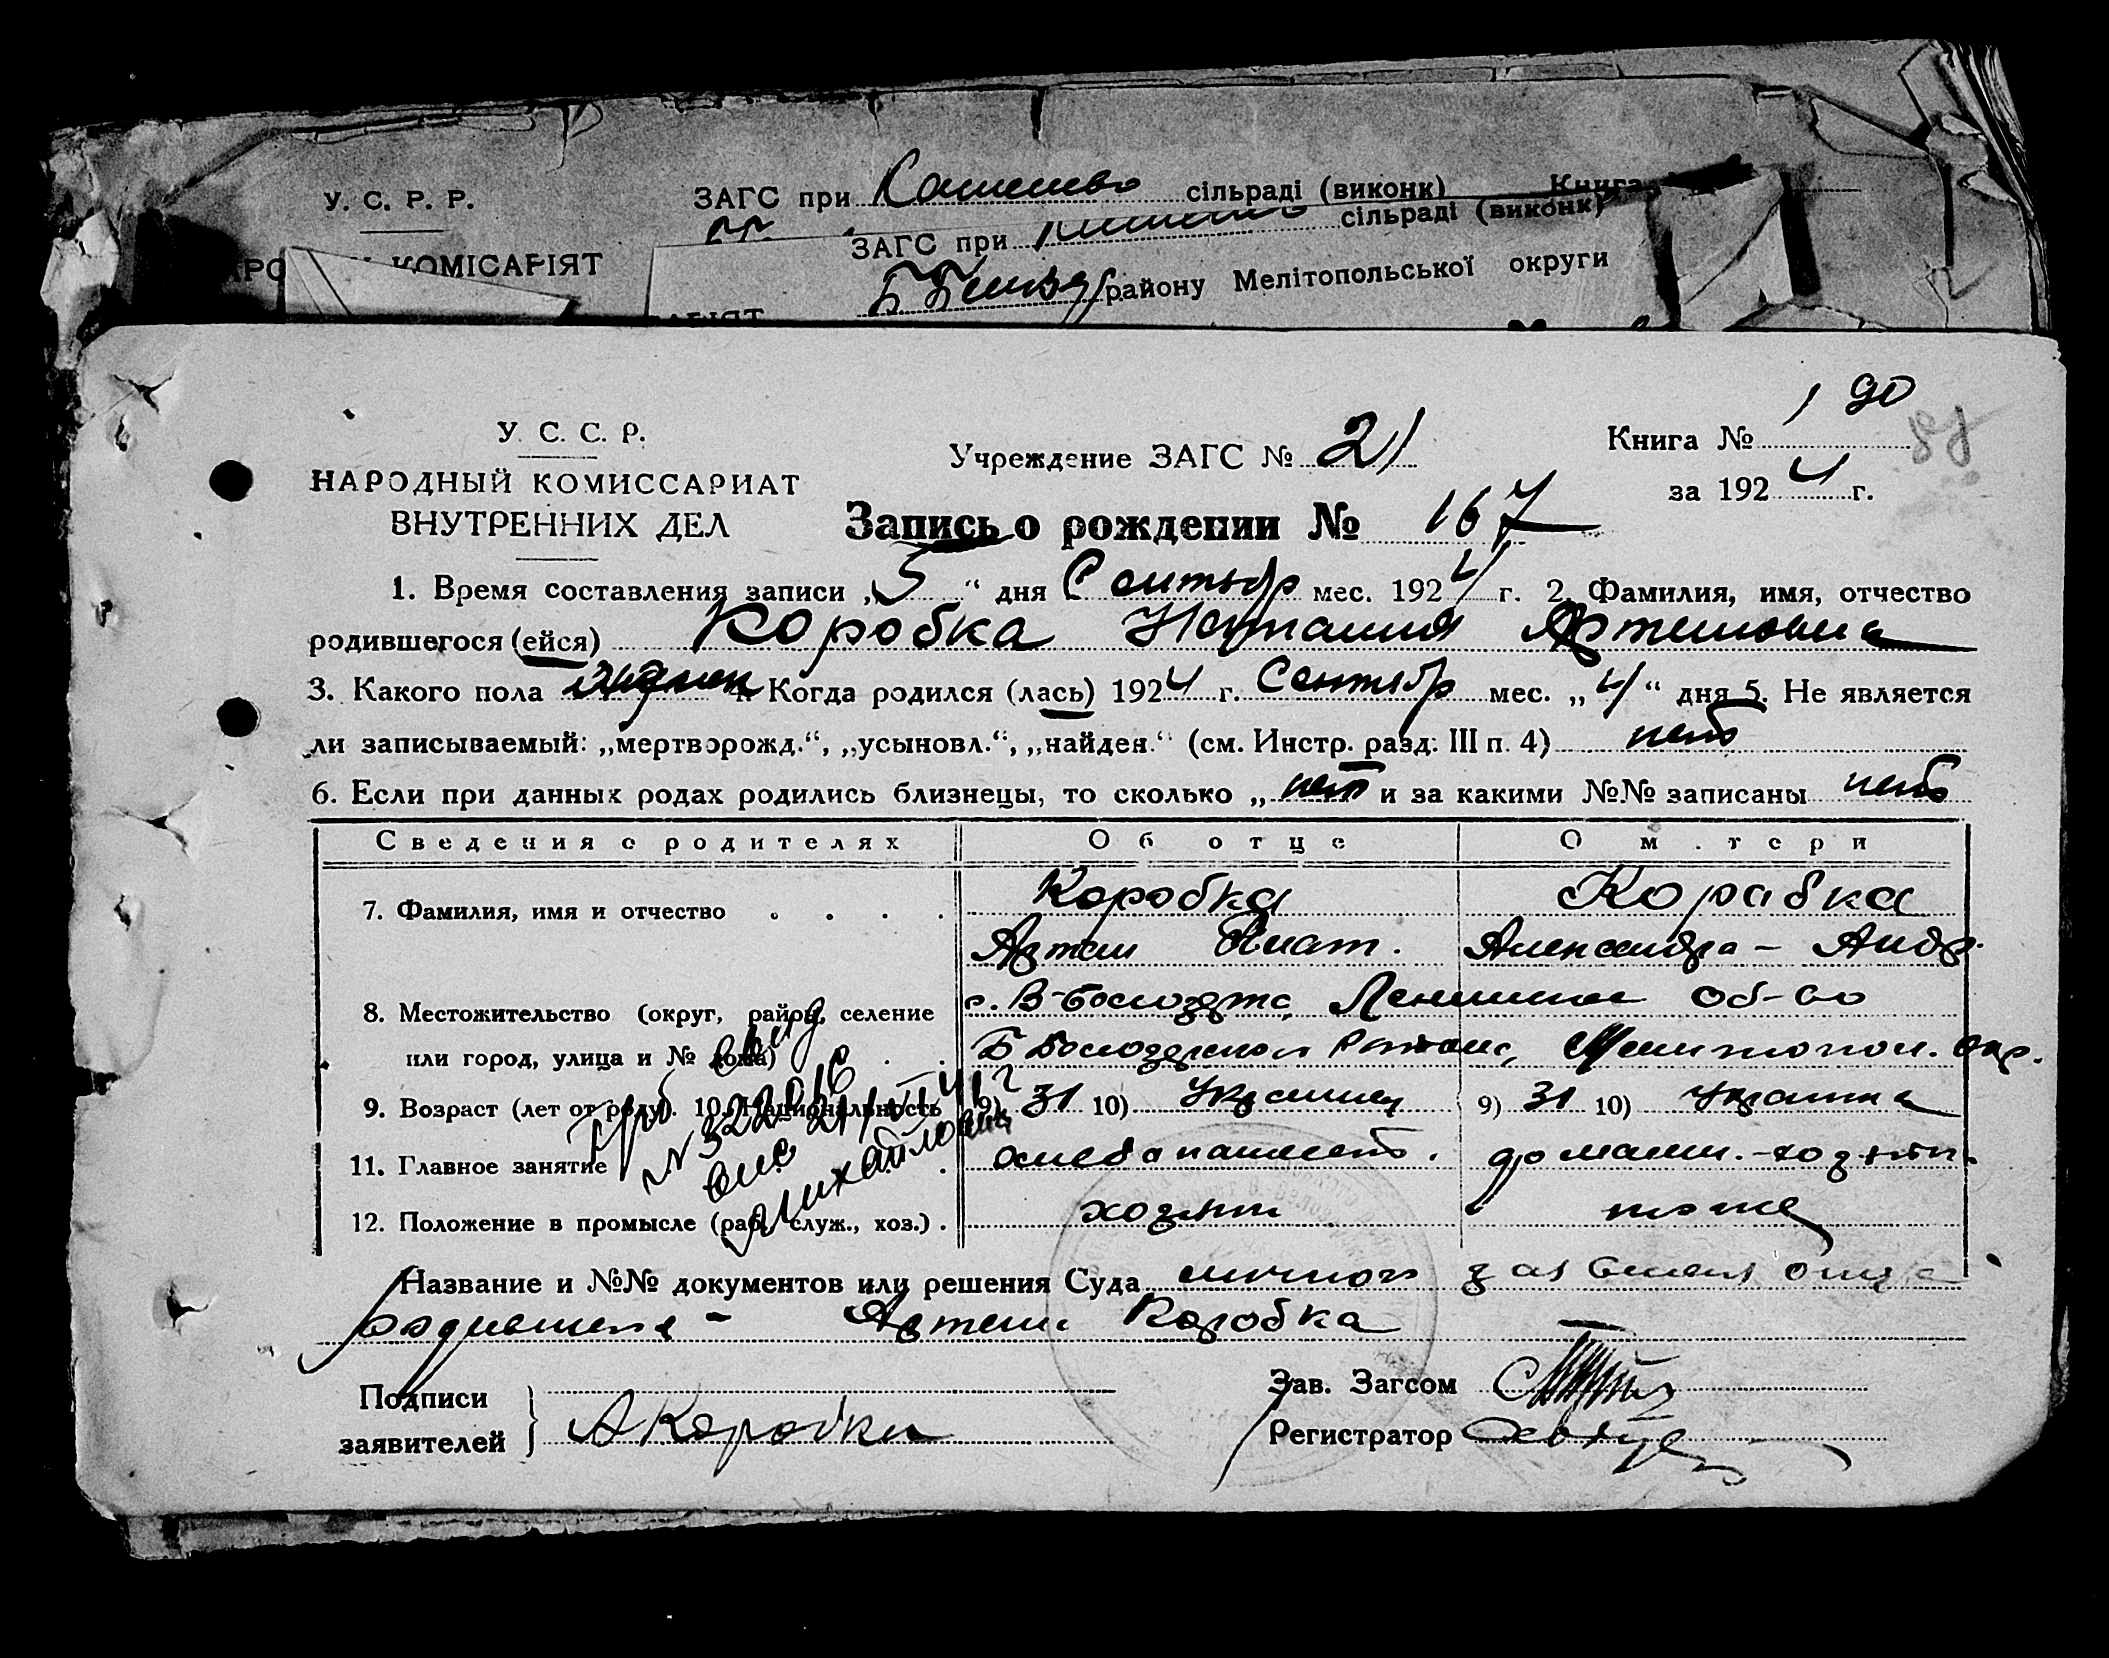 У. С. Р. Р.
ЗАГС при сільраді (виконк) Книга
КОМІСАРІЯТ
ЗАГС при сільраді (виконк)
району Мелітопольської округи
1 90
У. С. С. Р.
НАРОДНЫЙ КОМИССАРИАТ
ВНУТРЕННИХ ДЕЛ
Учреждение ЗАГС № 21
Книга №
за 1924 г.
Запись о рождении № 167
1. Время составления записи „5“ дня Сентябр мес. 1924 г. 2. Фамилия, имя, отчество
родившегося (ейся) Коробка Наталия Артемовна
3. Какого пола 4. Когда родился (лась) 1924 г. Сентябр мес. „4“ дня 5. Не является
ли записываемый: „мертворожд.“, „усыновл.“, „найден.“ (см. Инстр. разд. III п. 4) нет
6. Если при данных родах родились близнецы, то сколько „нет и за какими №№ записаны нет
Сведения о родителях Об отце О матери
7. Фамилия, имя и отчество Коробка Корабка
Артем Игнат. Александра - Андр.
8. Местожительство (округ, район, селение
или город, улица и № дома) Мелитопол. окр.
9. Возраст (лет от роду). 10. Национальность 9) 31 10) Украинец 9) 31 10) Украинка
11. Главное занятие хлебопашест. домашн.-хозяйк.
12. Положение в промысле (раб., служ., хоз.) хозяин тоже
№ 322016
Михайловец
Название и №№ документов или решения Суда личного заявления отца
родившейся - Артем Коробка
Подписи
заявителей А Коробка
Зав. Загсом
Регистратор